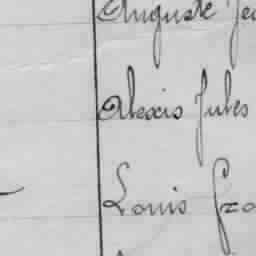 Auguste Je
Alexis Jules
Louis Gra